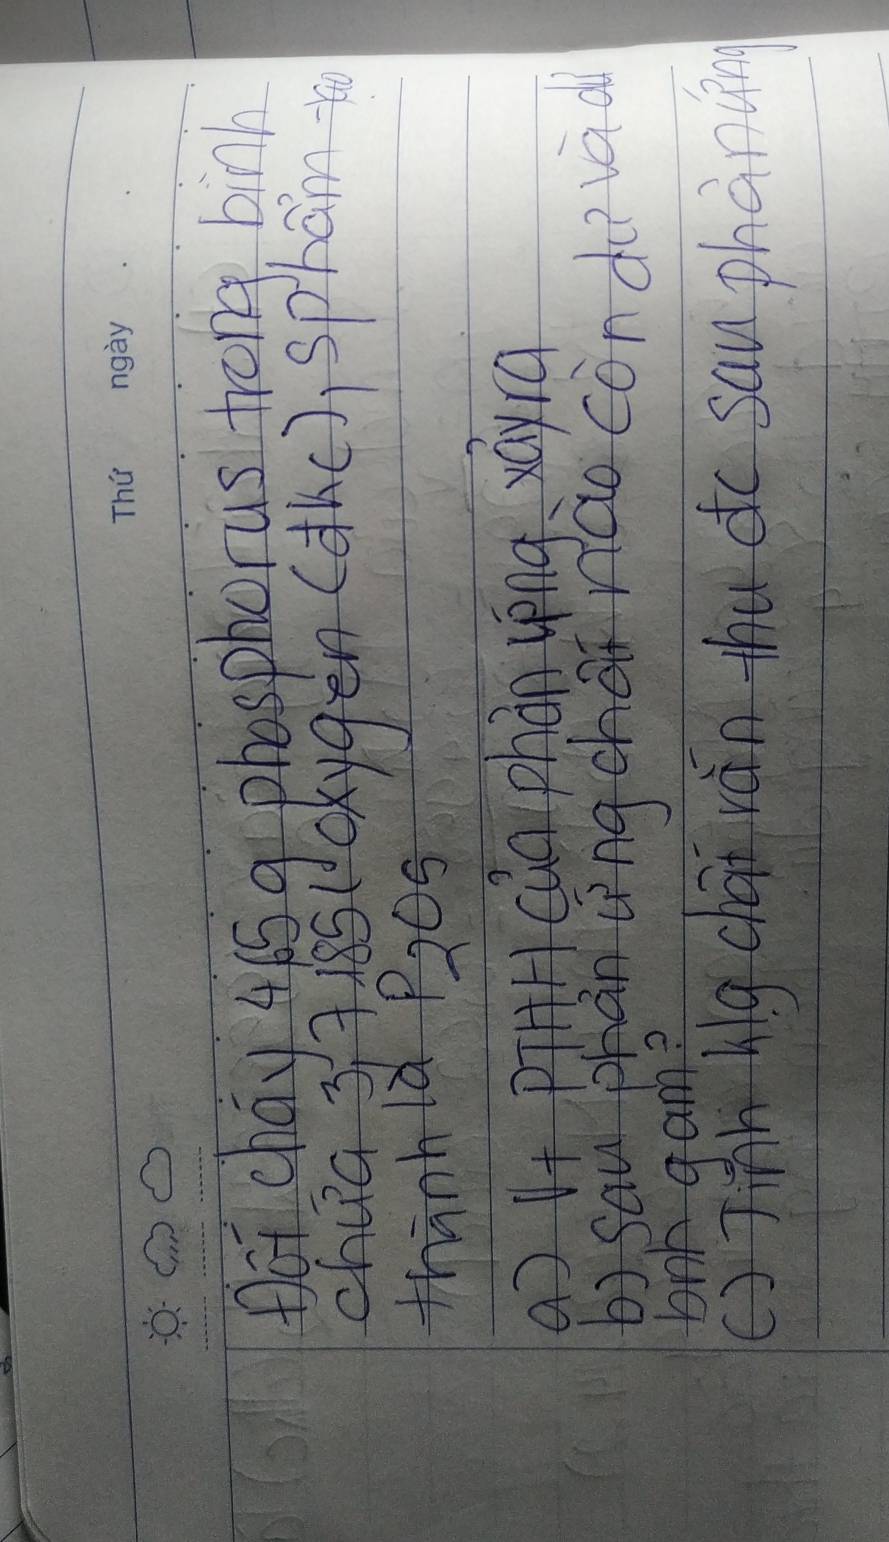 Thứ ngày
Đốt cháy 4,65 g phosphorus trong bình
chứa 3,7185 L oxygen (đkc), sphẩm tạo
thành là P2O5
a) Vt PTHH của phản ứng xảy ra
b) sau phản ứng chất nào còn dư và dư
bnh gam?
c) Tính klg chất rắn thu đc sau phản ứng